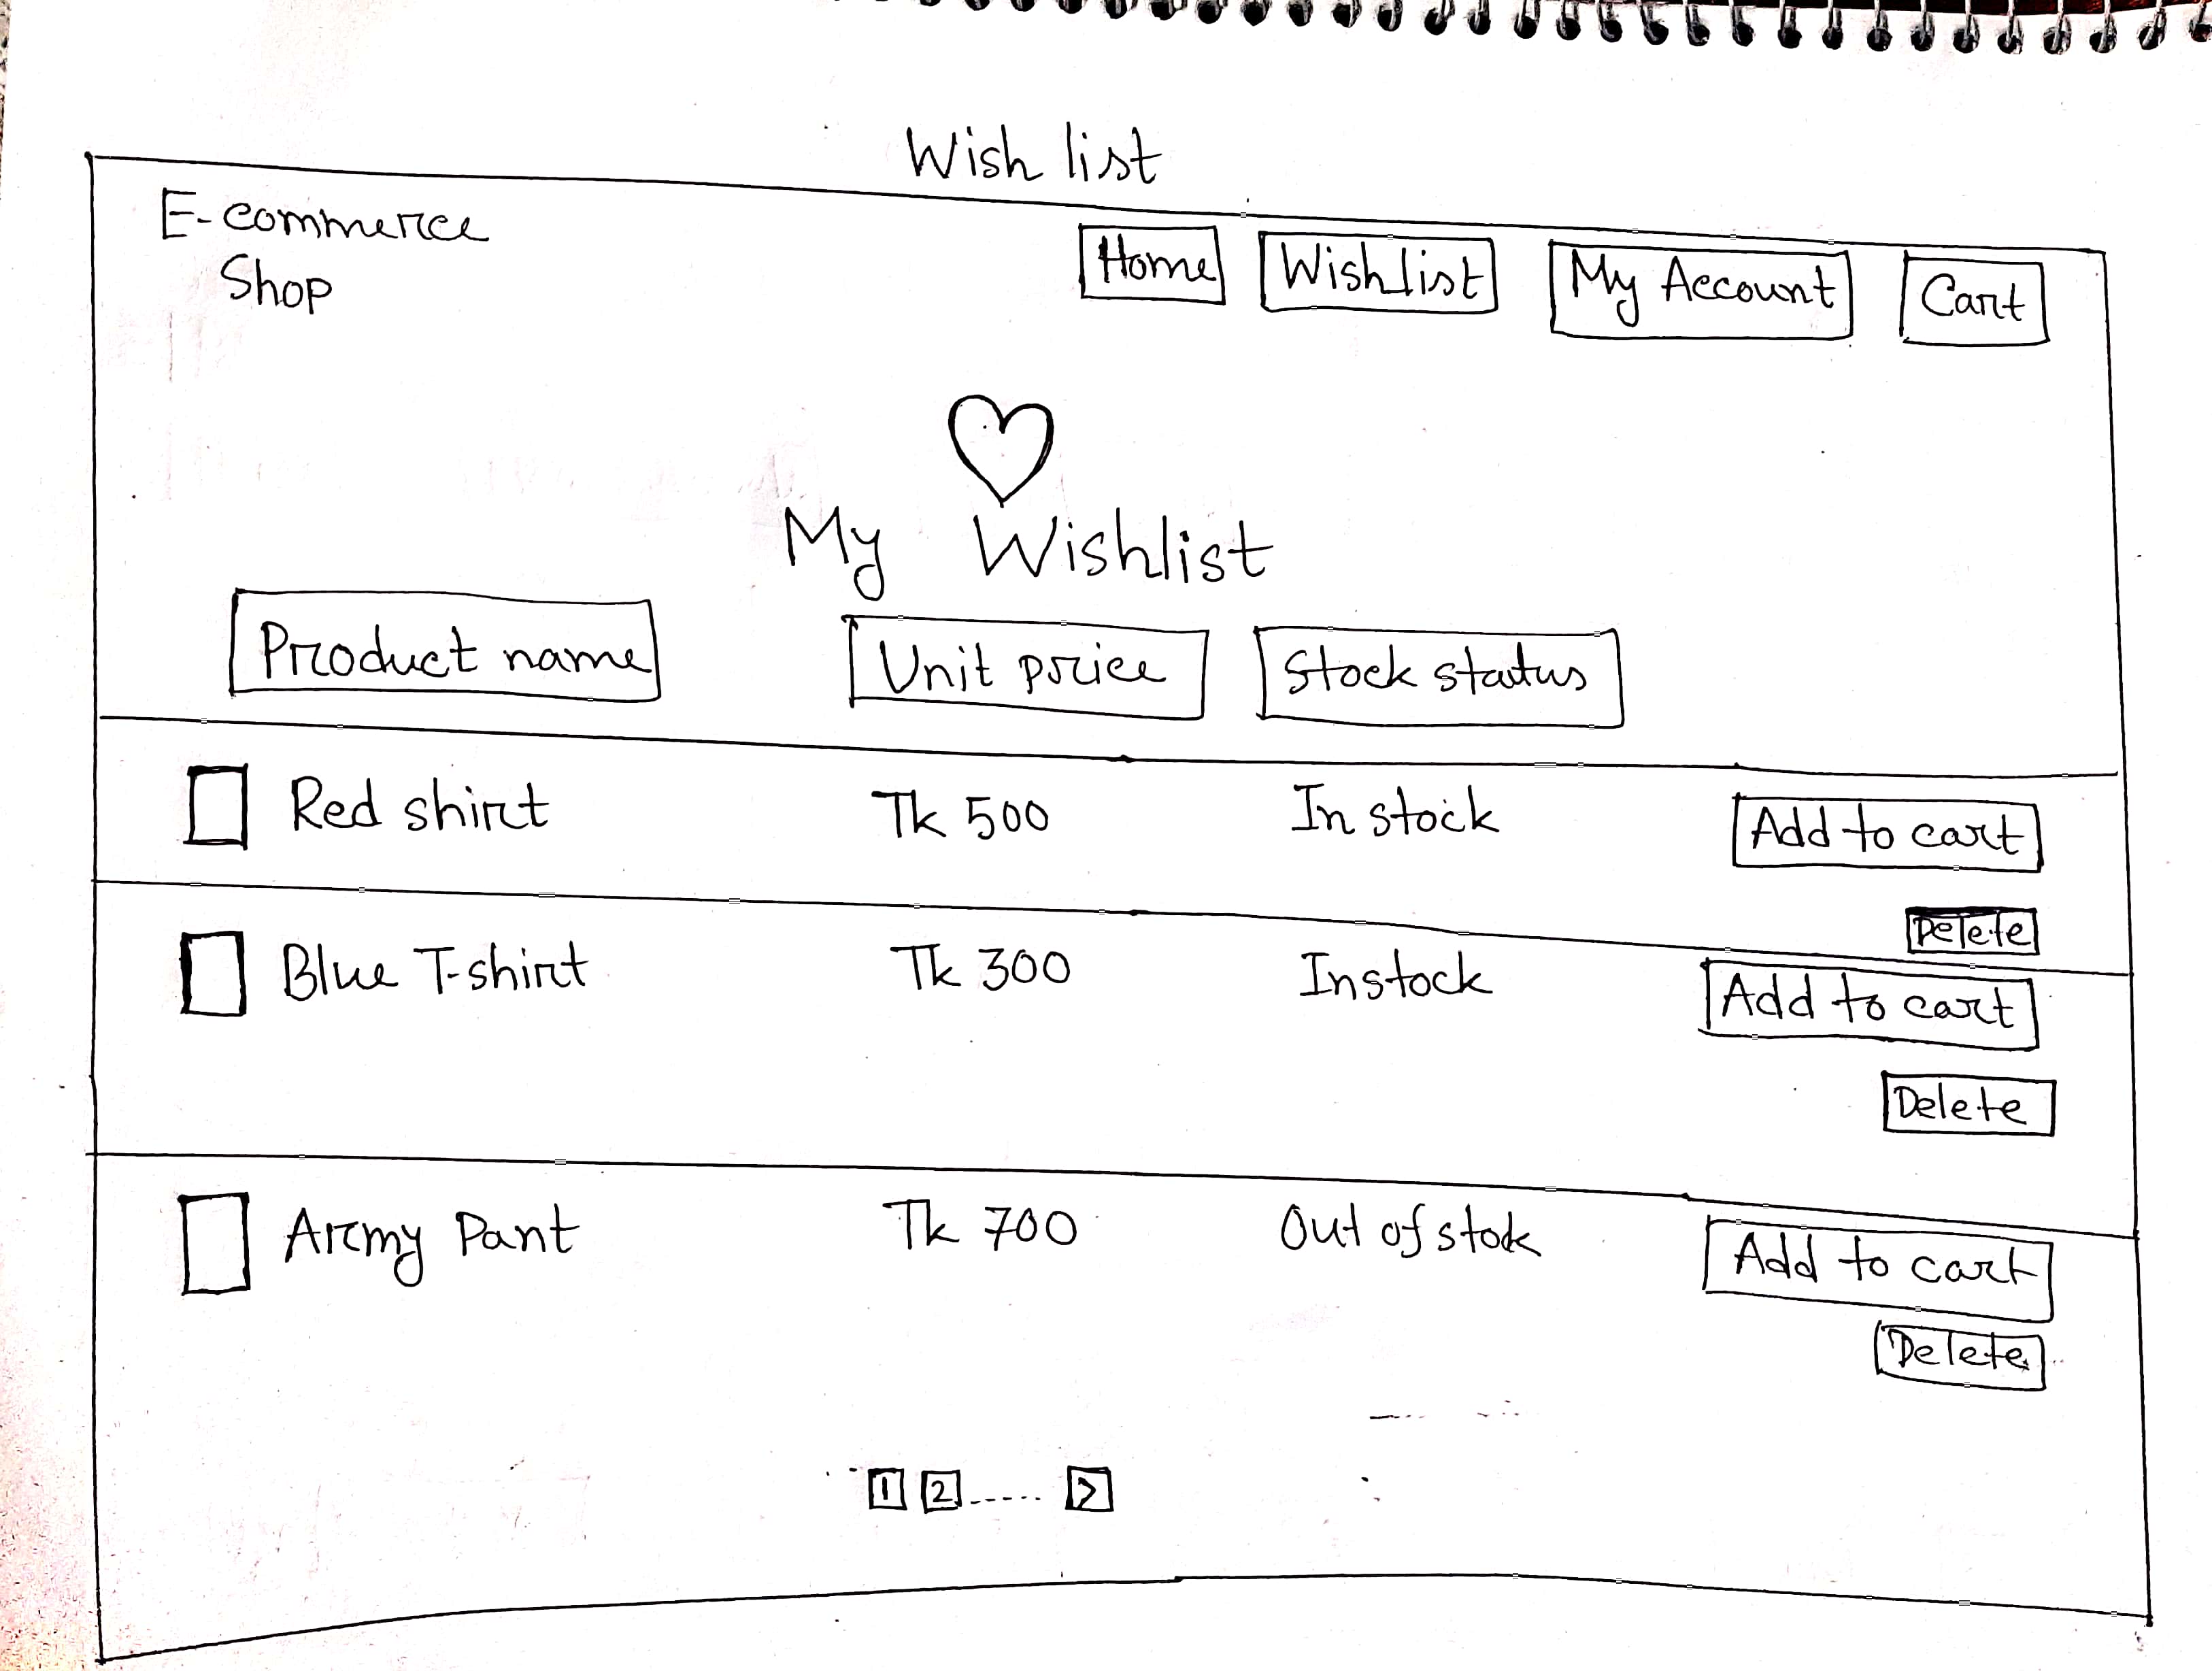 Wish list
E-commerce
Shop
Home Wishlist My Account Cart
My Wishlist
Product name Unit price Stock status
Red shirt Tk 500 In stock Add to cart
Delete
Blue T-shirt Tk 300 In stock Add to cart
Delete
Army Pant Tk 700 Out of stock Add to cart
Delete
1 2 ...... >